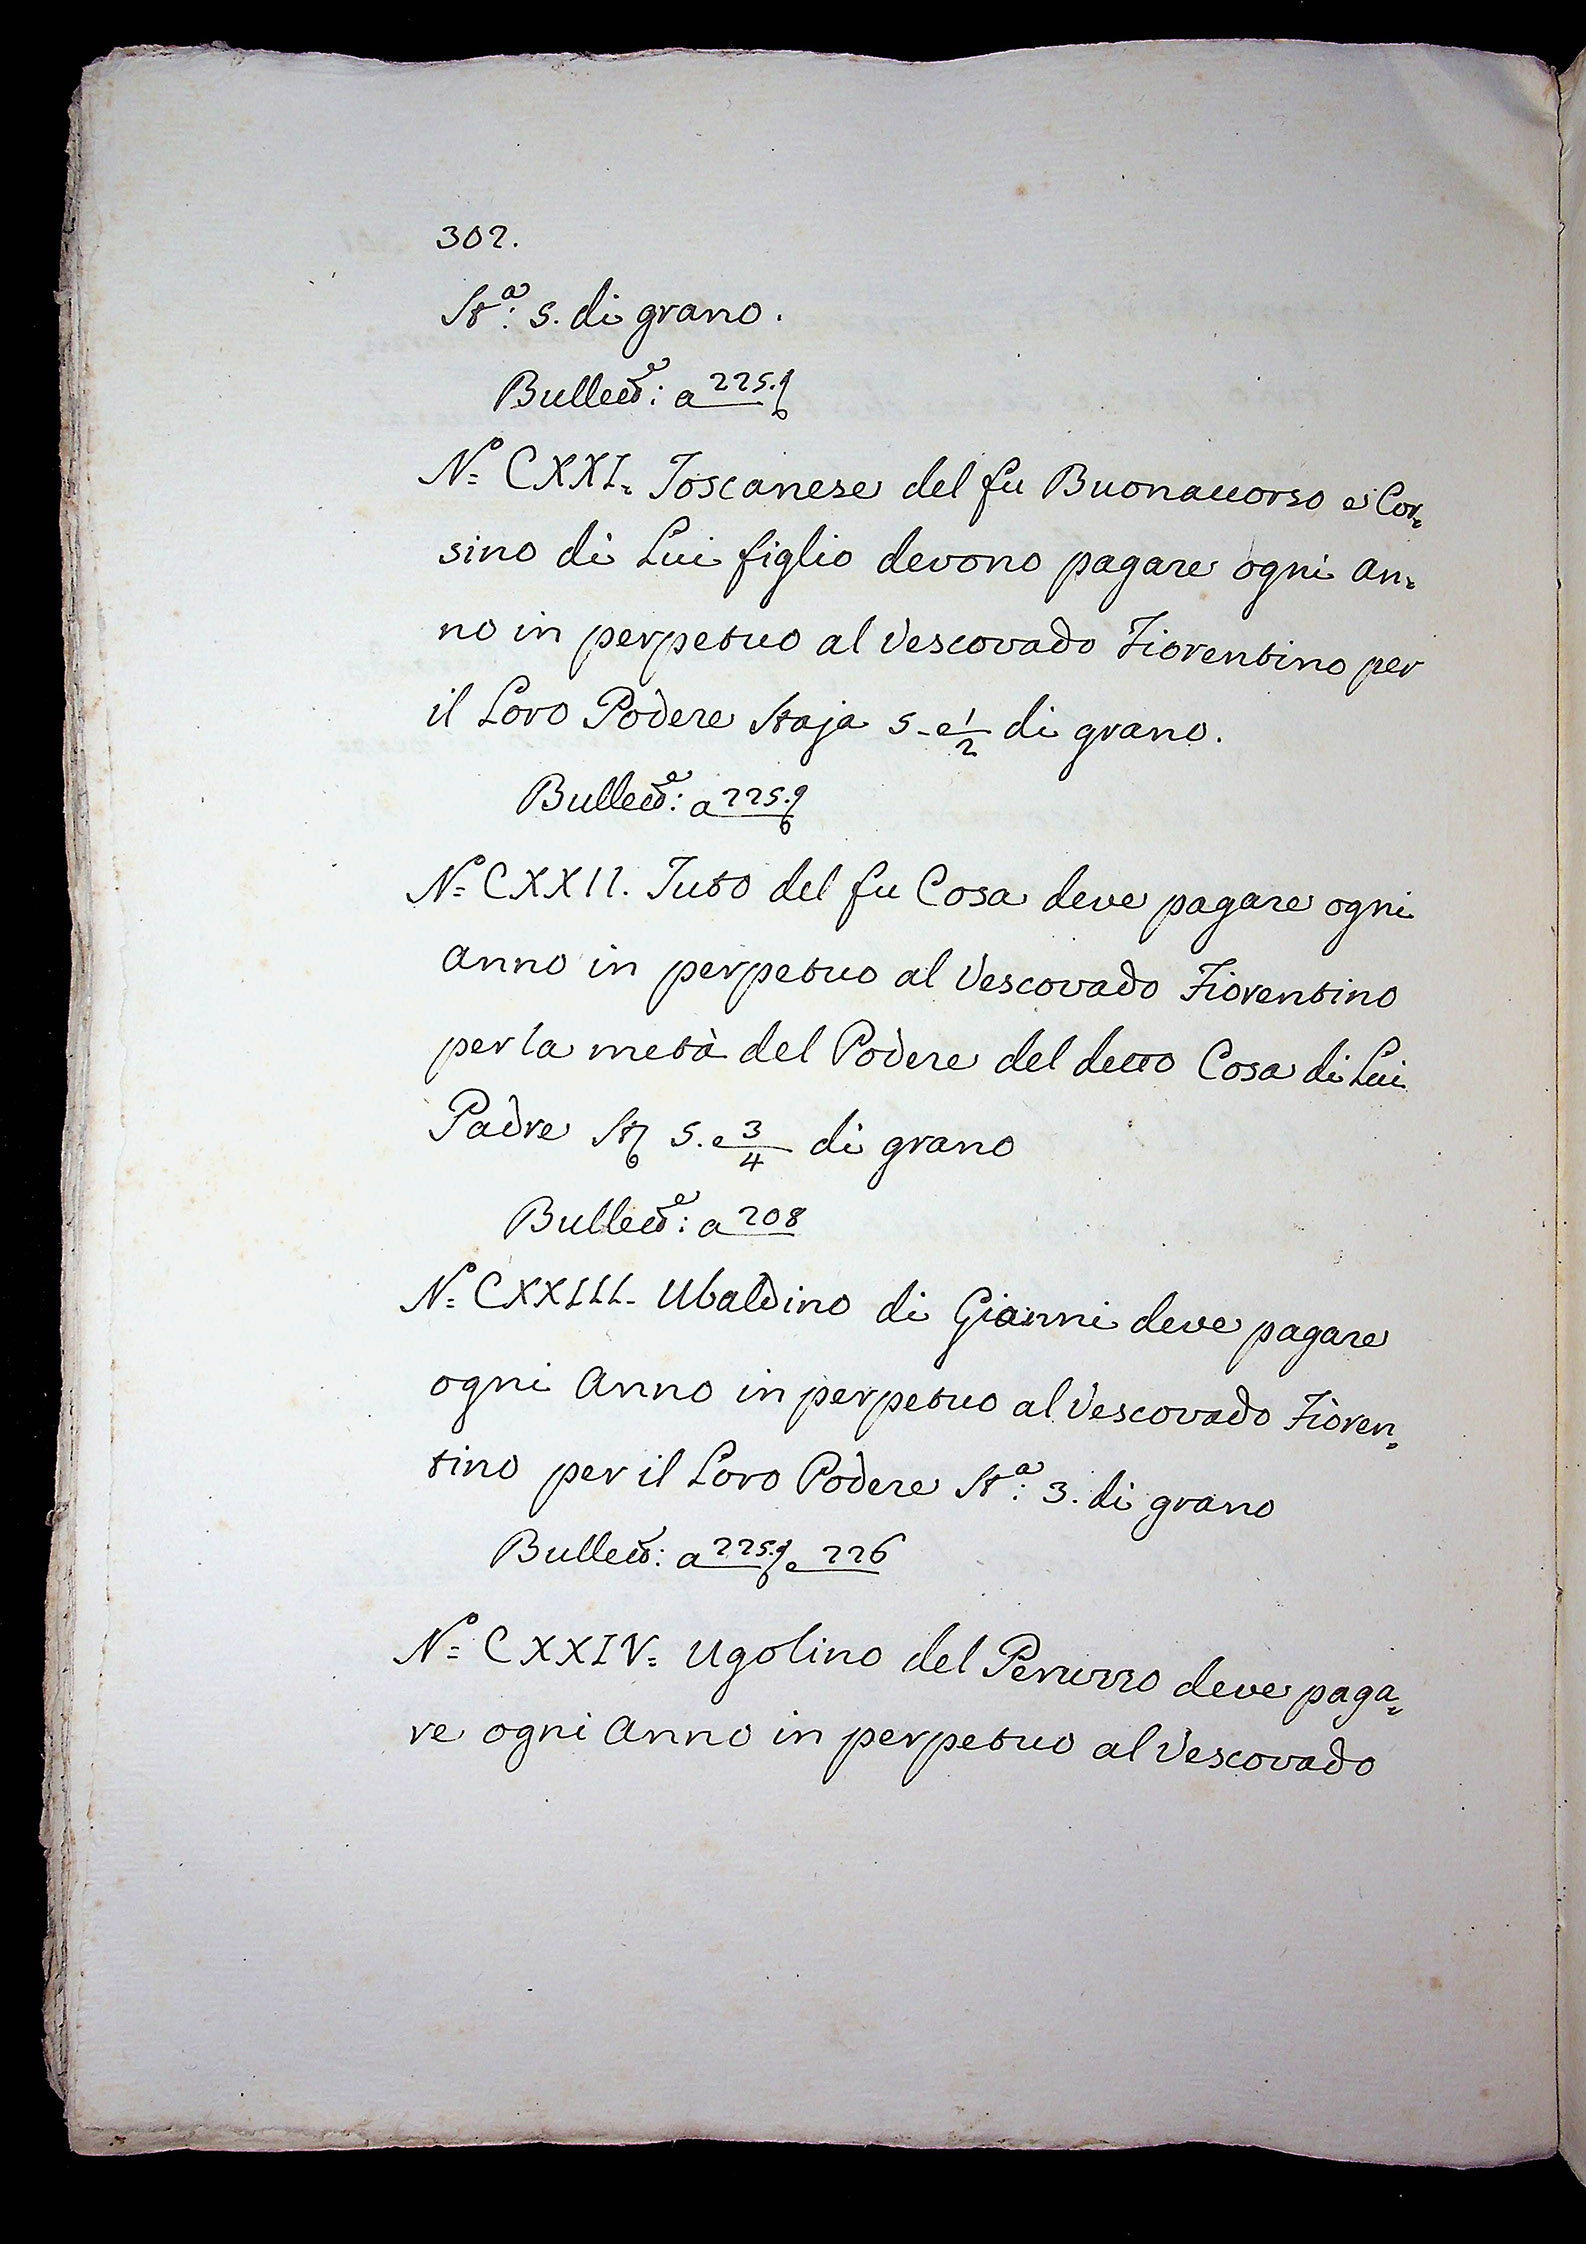 302.
Stª: 5. di grano.
Bullettᵉ: a 225.
Nº= CXXI= Toscanese del fu Buonaccorso e Cor=
sino di Lui figlio devono pagare ogni an=
no in perpetuo al Vescovado Fiorentino per
il Loro Podere Staja 5 - e 1/2 di grano.
Bullettᵉ: a 225.
Nº= CXXII. Tuto del fu Cosa deve pagare ogni
anno in perpetuo al Vescovado Fiorentino
per la metà del Podere del detto Cosa di Lui
Padre St 5. e 3/4 di grano
Bullettᵉ: a 208
Nº= CXXIII- Ubaldino di Gianni deve pagare
ogni Anno in perpetuo al Vescovado Fioren=
tino per il Loro Podere Stª: 3. di grano
Bullett: a 225. e 226
Nº= CXXIV= Ugolino del Peruzzo deve paga=
re ogni Anno in perpetuo al Vescovado